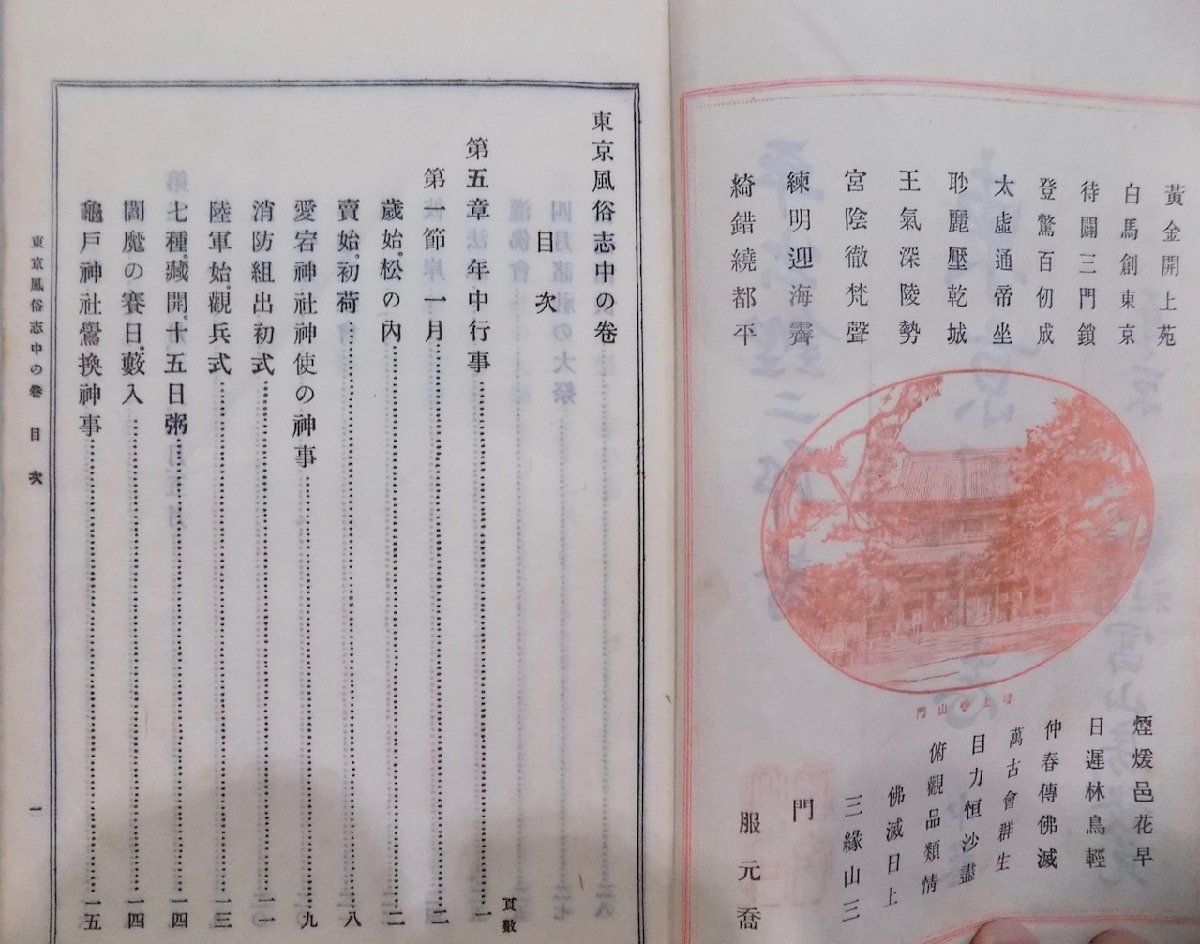 黃金開上苑
白馬創東京
待闢三門鎖
登驚百仞成
太虛通帝坐
眇麗壓乾城
王氣深陵勢
宮陰徹梵聲
練明迎海霽
綺錯繞都平
増上寺山門
煙煖邑花早
日遲林鳥輕
仲春傳佛滅
萬古會群生
目力恒沙盡
俯觀品類情
佛滅日上
三緣山三
門
服元喬
東京風俗志中の卷
目次
頁數
第五章 年中行事……一
第一節 一月……二
歲始。松の內……二
賣始。初荷……八
愛宕神社神使の神事……九
消防組出初式……一一
陸軍始。觀兵式……一三
七種。藏開。十五日粥……一四
閻魔の賽日。藪入……一四
龜戶神社鷽換神事……一五
東京風俗志中の卷 目次 一